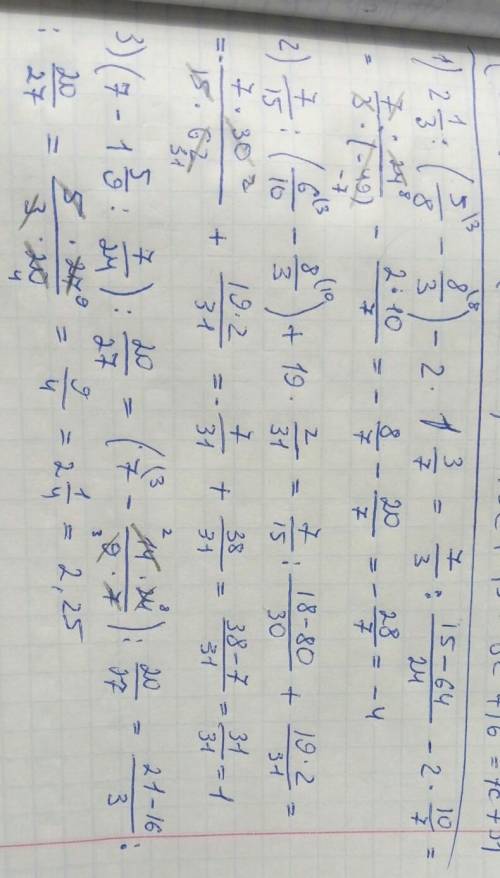 x + 16 = 7c + 51
1) 2 1/3 : (5/8 \3 - 8/3 \8) - 2 · 1 3/7 = 7/3 : (15-64)/24 - 2 · 10/7 =
= (7 · 24 8)/(3 · (-49) -7) - (2·10)/7 = - 8/7 - 20/7 = - 28/7 = -4
2) 7/15 : (6/10 \3 - 8/3 \10) + 19 · 2/31 = 7/15 : (18-80)/30 + (19·2)/31 =
= - (7 · 30 2)/(15 · 62 31) + (19·2)/31 = - 7/31 + 38/31 = (38-7)/31 = 31/31 = 1
3) (7 - 1 5/9 : 7/24) : 20/27 = (7 \3 - (14 2 · 24 8)/(9 3 · 7)) : 20/27 = (21-16)/3 :
: 20/27 = (5 · 27 9)/(3 · 20 4) = 9/4 = 2 1/4 = 2,25